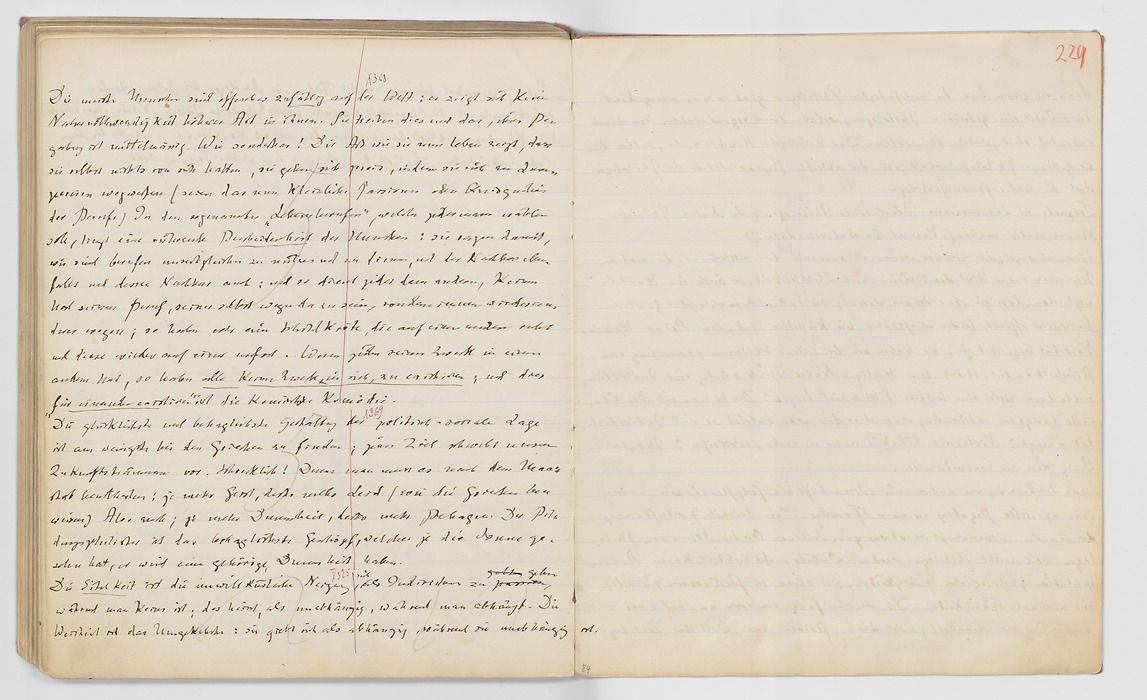 229
1368
Die meisten Menschen sind offenbar zufällig auf der Welt: es zeigt sich keine
Nothwendigkeit höherer Art in ihnen. Sie treiben dies und das, ihre Be-
gabung ist mittelmässig. Wie sonderbar! Die Art wie sie nun leben zeigt, dass
sie selbst nichts von sich halten, sie geben sich preis, indem sie sich an Lum-
pereien wegwerfen (seien das nun kleinliche Passionen oder Quisquilien
des Berufs) In den sogenannten „Lebensberufen“, welche jedermann wählen
soll, liegt eine rührende Bescheidenheit der Menschen: sie sagen damit,
wir sind berufen unsersgleichen zu nützen und zu dienen, und der Nachbar eben-
falls und dessen Nachbar auch; und so dient jeder dem andern, keiner
hat seinen Beruf, seiner selbst wegen da zu sein, sondern immer wieder an-
derer wegen; so haben wir eine Schildkröte, die auf einer andern ruht
und diese wieder auf einer und so fort. Wenn jeder seinen Zweck in einem
andern hat, so haben alle keinen Zweck in sich, zu existiren; und dies
„für einander existiren“ ist die komischste Komödie.
1369
Die glücklichste und behaglichste Gestaltung der politisch-socialen Lage
ist am wenigsten bei den Griechen zu finden; jenes Ziel schwebt unseren
Zukunftsträumern vor. Schrecklich! Denn man muss es nach dem Maas-
stab beurtheilen: je mehr Geist, desto mehr Leid (wie die Griechen be-
weisen) Also auch: je mehr Dummheit, desto mehr Behagen. Der Bil-
dungsphilister ist das behaglichste Geschöpf, welches je die Sonne ge-
sehen hat, er wird eine gehörige Dummheit haben.
Die Eitelkeit ist die unwillkürliche Neigung, sich als Individuum zu geben,
während man keines ist; das heisst, als unabhängig, während man abhängt. Die
Weisheit ist das Umgekehrte: sie giebt sich als abhängig, während sie unabhängig ist.
84